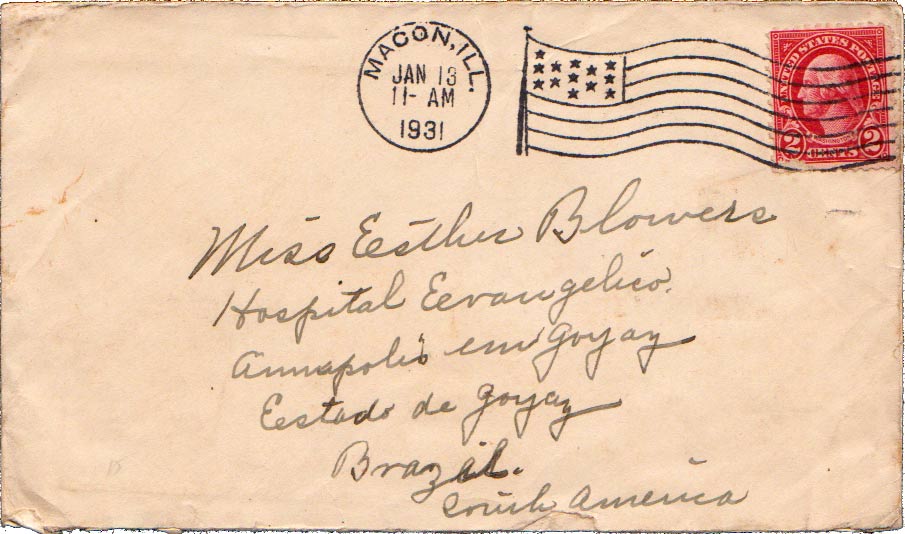 MACON, ILL.
JAN 13
11- AM
1931
UNITED STATES POSTAGE
WASHINGTON
2 CENTS 2
Miss Esther Blowers
Hospital Eevangelico.
Annapolis em Goyaz
Eestado de Goyaz
Brazil.
South America